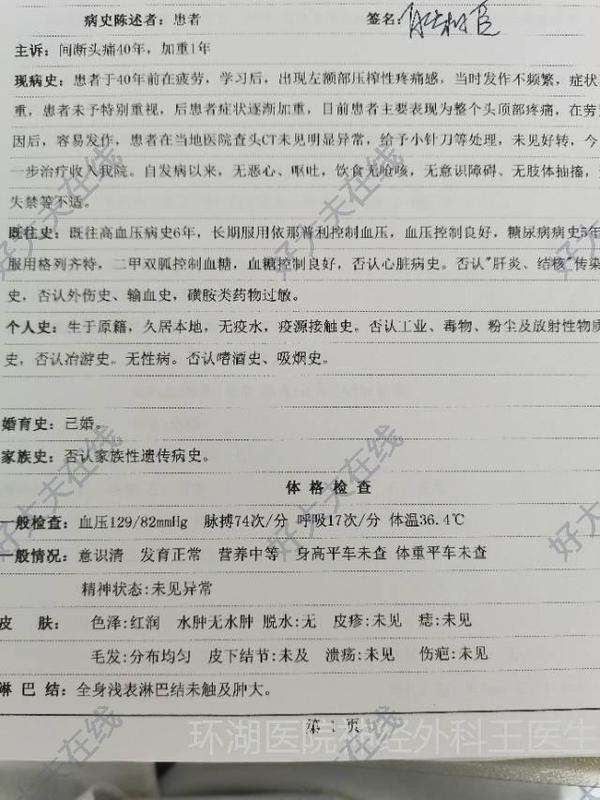 病史陈述者：患者 签名：
主诉：间断头痛40年，加重1年
现病史：患者于40年前在疲劳，学习后，出现左额部压榨性疼痛感，当时发作不频繁，症状
重，患者未予特别重视，后患者症状逐渐加重，目前患者主要表现为整个头顶部疼痛，在劳
因后，容易发作，患者在当地医院查头CT未见明显异常，给予小针刀等处理，未见好转，今
一步治疗收入我院。自发病以来，无恶心、呕吐，饮食无呛咳，无意识障碍、无肢体抽搐，
失禁等不适。
既往史：既往高血压病史6年，长期服用依那普利控制血压，血压控制良好，糖尿病病史5年
服用格列齐特，二甲双胍控制血糖，血糖控制良好，否认心脏病史。否认"肝炎、结核"传染
史，否认外伤史、输血史，磺胺类药物过敏。
个人史：生于原籍，久居本地，无疫水，疫源接触史。否认工业、毒物、粉尘及放射性物质
史，否认冶游史。无性病。否认嗜酒史、吸烟史。
婚育史：已婚。
家族史：否认家族性遗传病史。
体格检查
一般检查：血压129/82mmHg 脉搏74次/分 呼吸17次/分 体温36.4℃
一般情况：意识清 发育正常 营养中等 身高平车未查 体重平车未查
精神状态:未见异常
皮 肤： 色泽:红润 水肿无水肿 脱水:无 皮疹:未见 痣:未见
毛发:分布均匀 皮下结节:未及 溃疡:未见 伤疤:未见
淋 巴 结：全身浅表淋巴结未触及肿大。
第 1 页
环湖医院神经外科王医生
好大夫在线
好大夫在线
好大夫在线
好大夫在线
好大夫在线
好大夫在线
好大夫在线